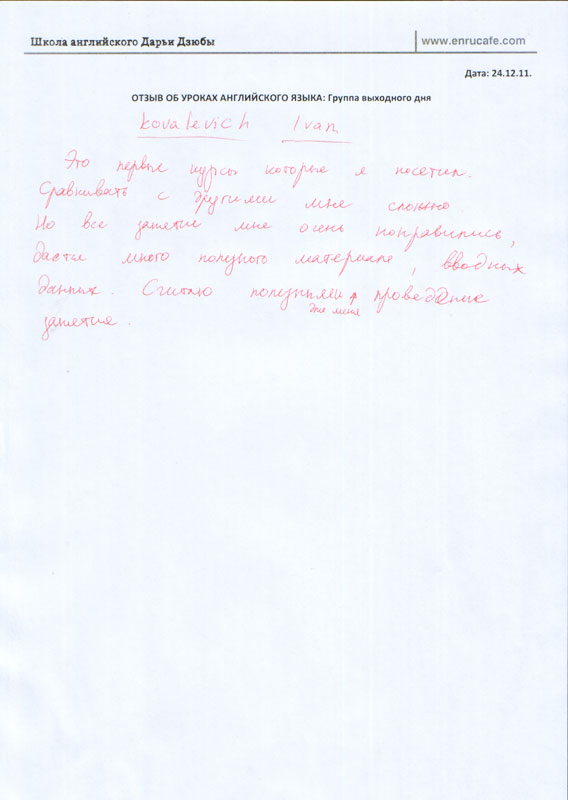 Школа английского Дарьи Дзюбы
www.enrucafe.com
Дата: 24.12.11.
ОТЗЫВ ОБ УРОКАХ АНГЛИЙСКОГО ЯЗЫКА: Группа выходного дня
Kovalevich Ivan
Это первые курсы которые я посетил.
Сравнивать с другими мне сложно.
Но все занятие мне очень понравились,
дасти много полузного материала, вводных
данных. Считаю полезными проведение
для меня
занятия.